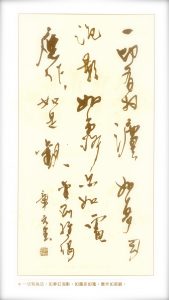 一切有為法如夢幻
泡影如露亦如電
應作如是觀
一切有為法，如夢幻泡影，如露亦如電，應作如是觀。